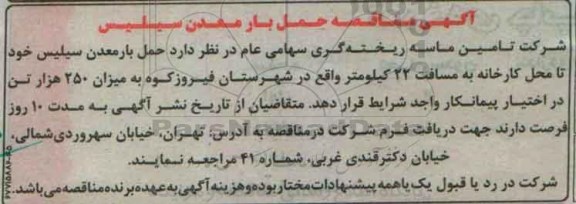 آگهی مناقصه حمل بار معدن سیلیس
شرکت تامین ماسه ریخته‌گری سهامی عام در نظر دارد حمل بارمعدن سیلیس خود
تا محل کارخانه به مسافت ۲۲ کیلومتر واقع در شهرستان فیروزکوه به میزان ۲۵۰ هزار تن
در اختیار پیمانکار واجد شرایط قرار دهد. متقاضیان از تاریخ نشر آگهی به مدت ۱۰ روز
فرصت دارند جهت دریافت فرم شرکت درمناقصه به آدرس: تهران، خیابان سهروردی‌شمالی،
خیابان دکترقندی غربی، شماره ۴۱ مراجعه نمایند.
شرکت در رد یا قبول یک‌یاهمه پیشنهادات‌مختاربوده‌وهزینه‌آگهی‌به‌عهده‌برنده‌مناقصه‌می‌باشد.